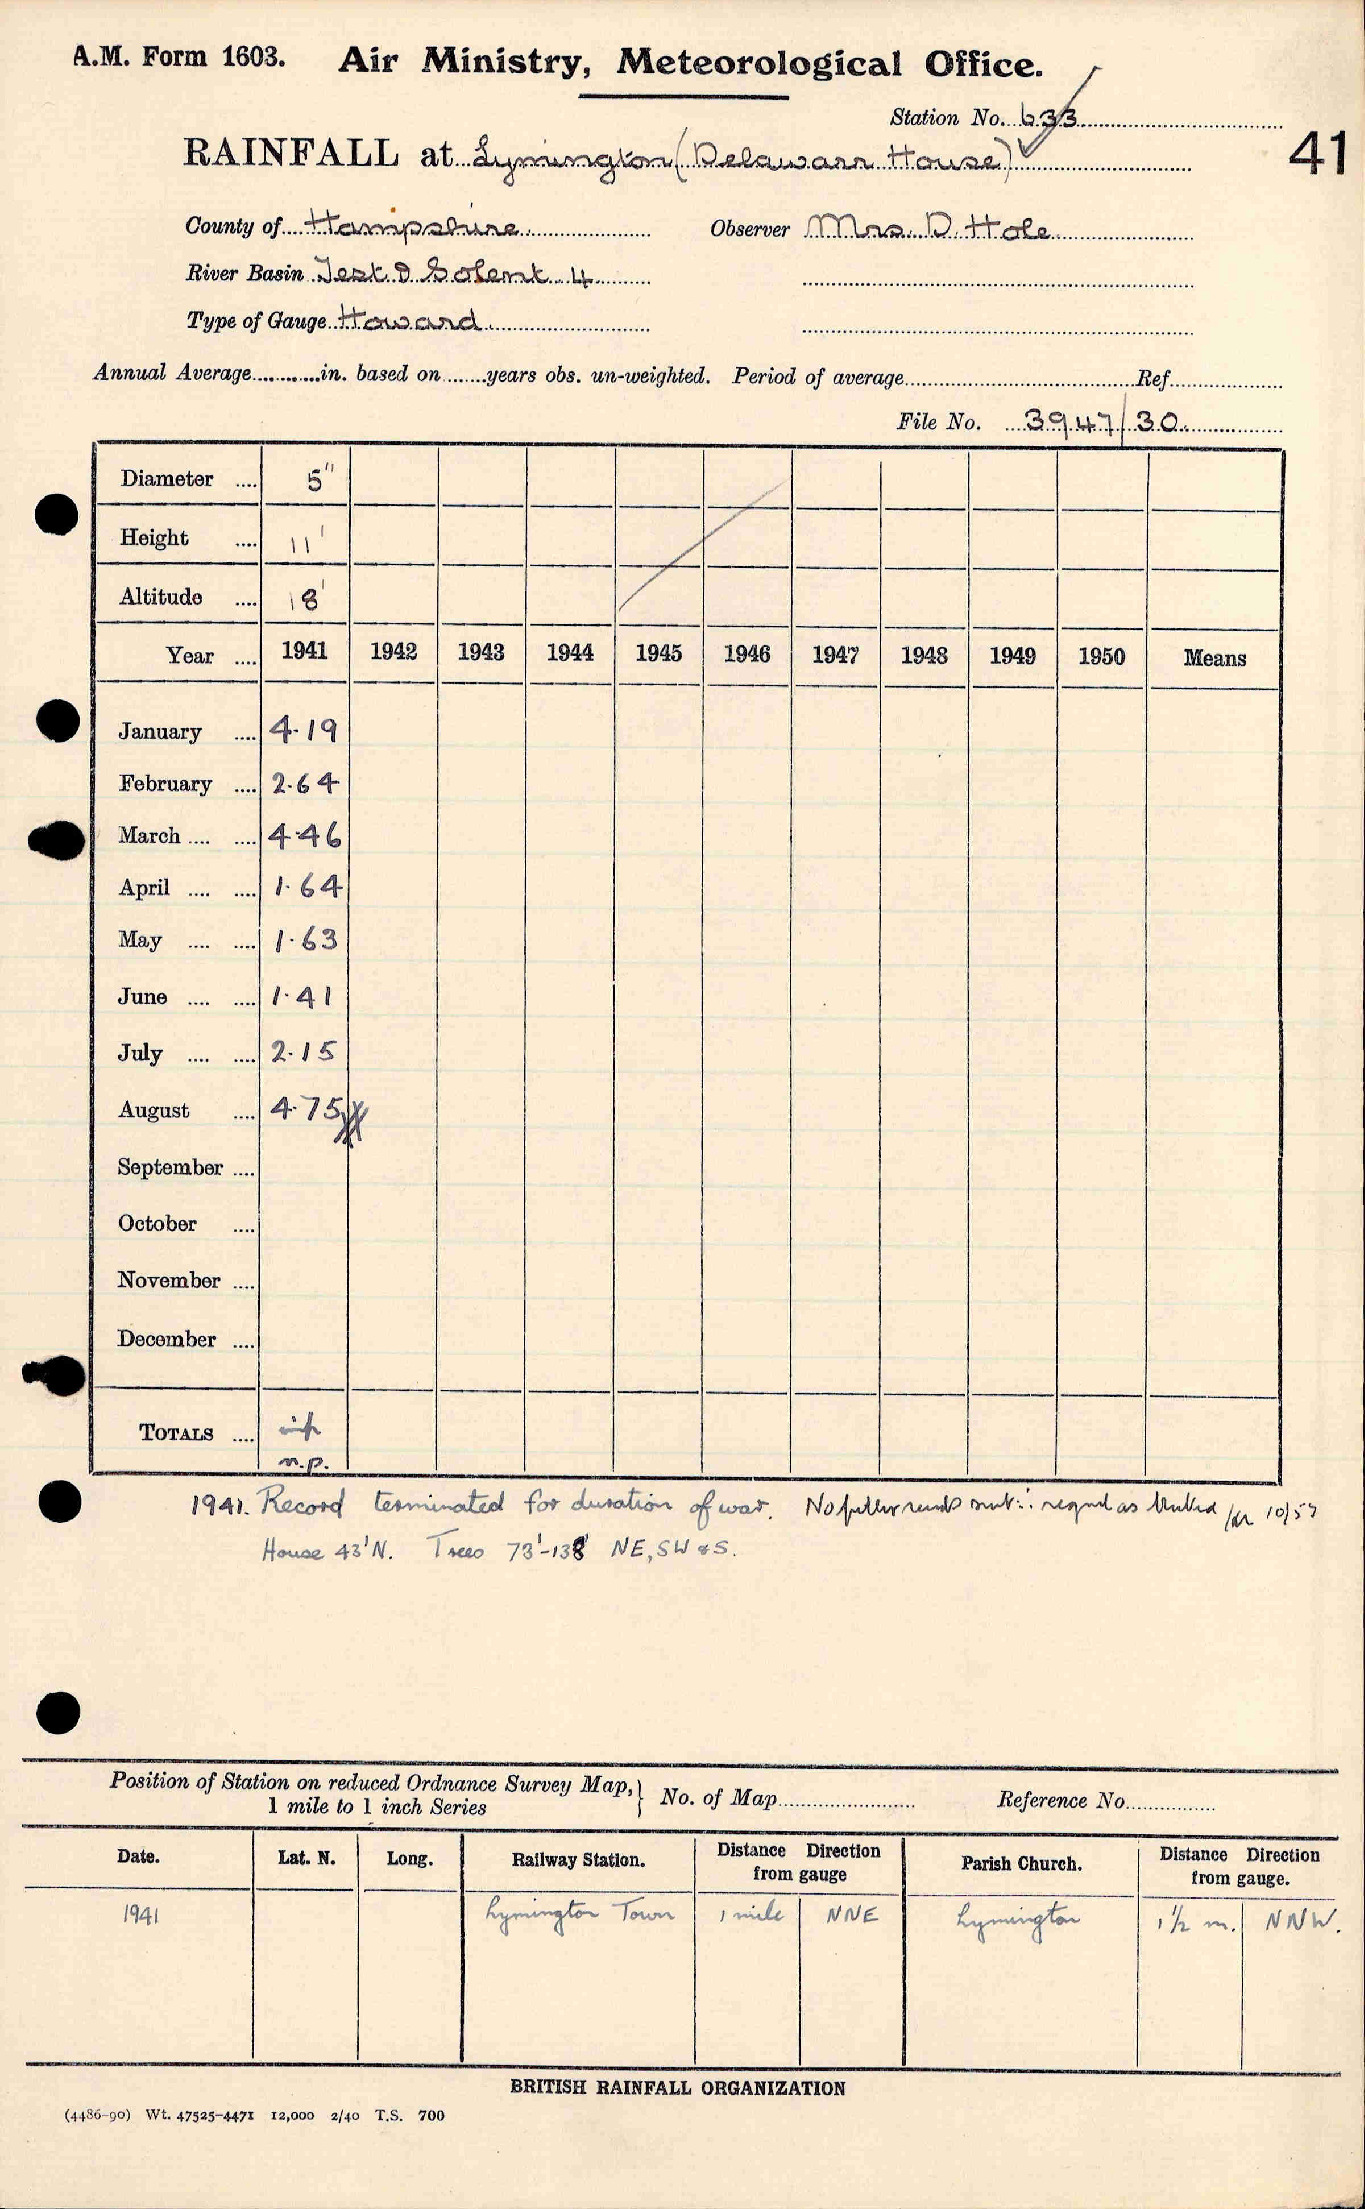 A.M. Form 1603. Air Ministry, Meteorological Office.
Station No. 633
RAINFALL at Lymington (Delawarr House)
41
County of Hampshire Observer Mrs. D. Hole
River Basin Test & Solent 4
Type of Gauge Howard
Annual Average............in. based on........years obs. un-weighted. Period of average.............Ref.............
File No. 3947/30
Diameter .... 5"
Height .... 11'
Altitude .... 18'
Year .... 1941 1942 1943 1944 1945 1946 1947 1948 1949 1950 Means
January .... 4.19
February .... 2.64
March .... .... 4.46
April .... .... 1.64
May .... .... 1.63
June .... .... 1.41
July .... .... 2.15
August .... 4.75
September ....
October ....
November ....
December ....
TOTALS ....
n.p.
1941. Record terminated for duration of war. No further 10/57
House 43'N. Trees 73'-138' NE, SW & S.
Position of Station on reduced Ordnance Survey Map, } No. of Map............ Reference No............
1 mile to 1 inch Series
Date. Lat. N. Long. Railway Station. Distance Direction from gauge Parish Church. Distance Direction from gauge.
1941 Lymington Town 1 mile NNE Lymington 1½ m. NNW.
BRITISH RAINFALL ORGANIZATION
(4486-90) Wt. 47525-4471 12,000 2/40 T.S. 700